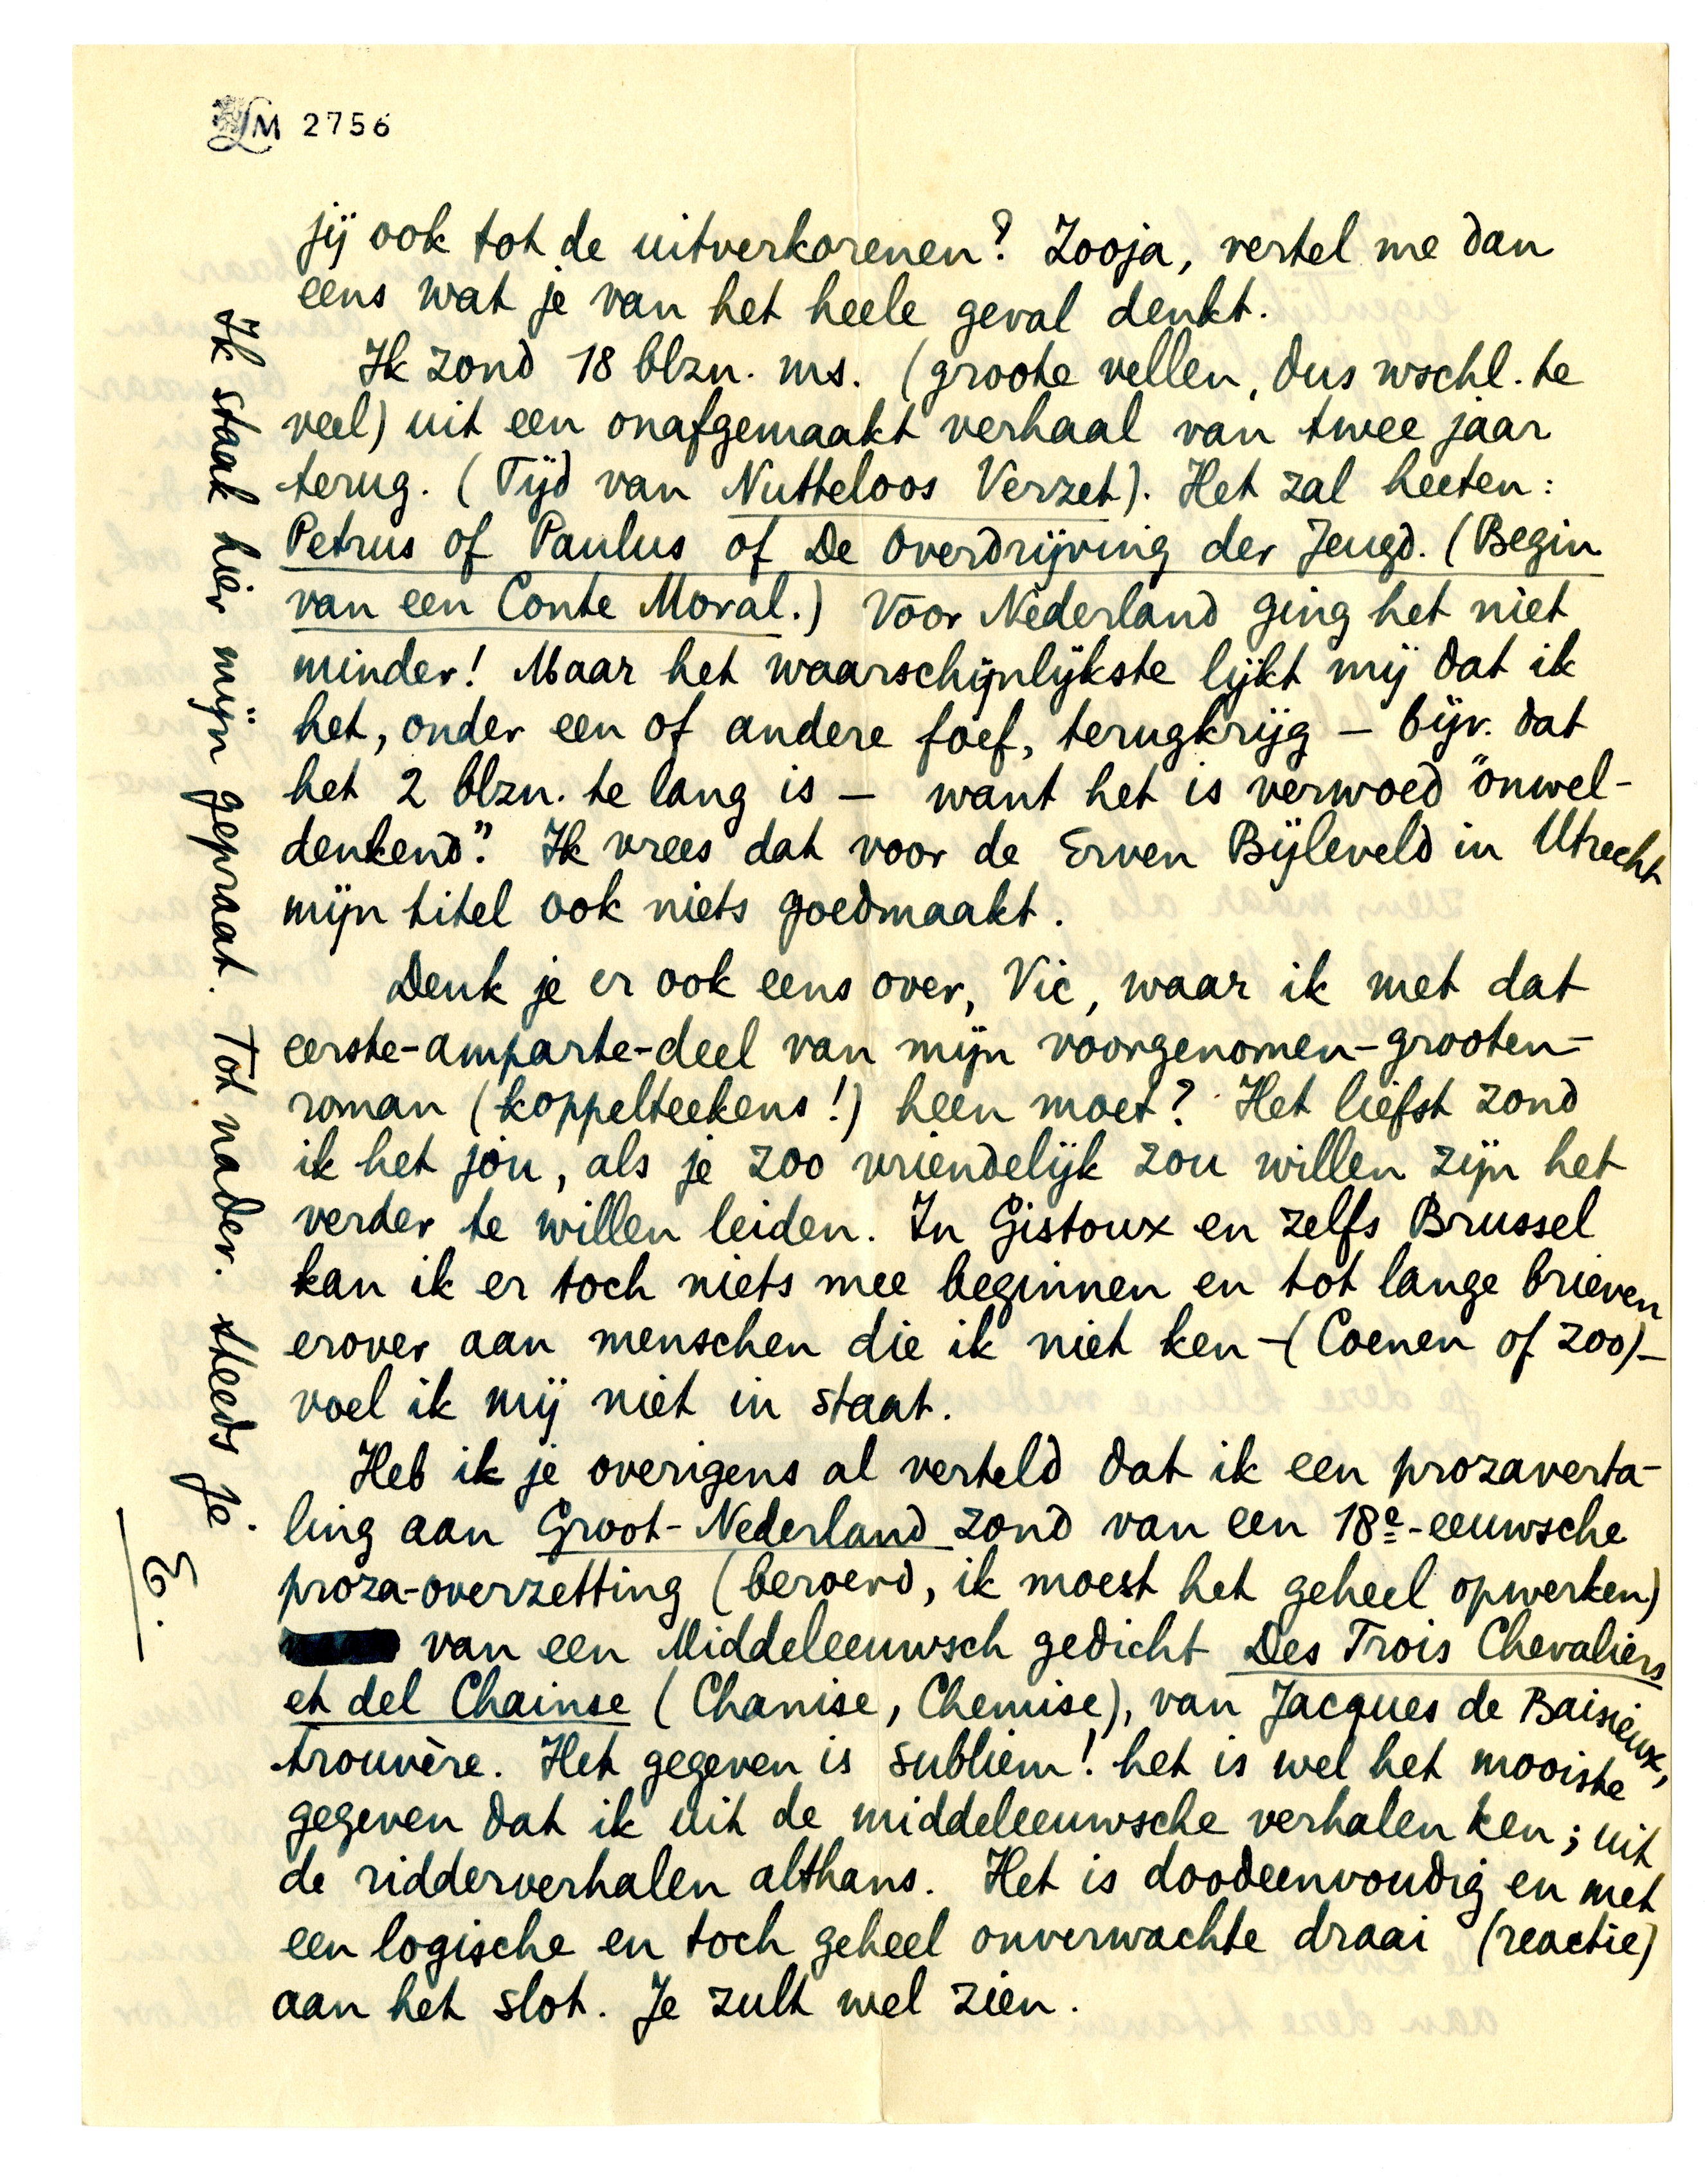 LM 2756
jij ook tot de uitverkorenen? Zooja, vertel me dan
eens wat je van het heele geval denkt.
Ik zond 18 blzn. ms. (groote vellen, dus wschl. te
veel) uit een onafgemaakt verhaal van twee jaar
terug. (Tijd van Nutteloos Verzet). Het zal heeten:
Petrus of Paulus of De Overdrijving der Jeugd. (Begin
van een Conte Moral.) Voor Nederland ging het niet
minder! Maar het waarschijnlijkste lijkt mij dat ik
het, onder een of andere foef, terugkrijg – bijv. dat
het 2 blzn. te lang is – want het is verwoed "onwel-
denkend". Ik vrees dat voor de Erven Bijleveld in Utrecht
mijn titel ook niets goedmaakt.
Denk je er ook eens over, Vic, waar ik met dat
eerste-amparte-deel van mijn voorgenomen-grooten-
roman (koppelteekens!) heen moet? Het liefst zond
ik het jou, als je zoo vriendelijk zou willen zijn het
verder te willen leiden. In Gistoux en zelfs Brussel
kan ik er toch niets mee beginnen en tot lange brieven
erover aan menschen die ik niet ken –(Coenen of zoo)–
voel ik mij niet in staat.
Heb ik je overigens al verteld dat ik een prozaverta-
ling aan Groot-Nederland zond van een 18e-eeuwsche
proza-overzetting (beroerd, ik moest het geheel opwerken)
van een Middeleeuwsch gedicht Des Trois Chevaliers
et del Chainse (Chanise, Chemise), van Jacques de Baisieux,
trouvère. Het gegeven is subliem! het is wel het mooiste
gegeven dat ik uit de middeleeuwsche verhalen ken; uit
de ridderverhalen althans. Het is doodeenvoudig en met
een logische en toch geheel onverwachte draai (reactie)
aan het slot. Je zult wel zien.
Ik staak hier mijn gepraat. Tot nader. Steeds je
E.